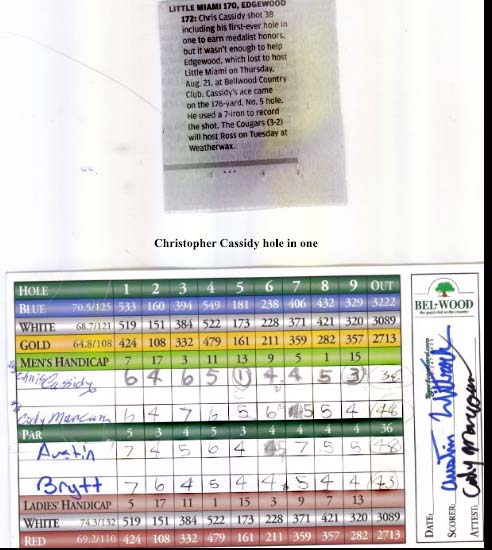 LITTLE MIAMI 170, EDGEWOOD
172: Chris Cassidy shot 38
including his first-ever hole in
one to earn medalist honors,
but it wasn't enough to help
Edgewood, which lost to host
Little Miami on Thursday,
Aug. 21, at Bellwood Country
Club. Cassidy's ace came
on the 176-yard, No. 5 hole.
He used a 7-iron to record
the shot. The Cougars (3-2)
will host Ross on Tuesday at
Weatherwax.
Christopher Cassidy hole in one
HOLE 1 2 3 4 5 6 7 8 9 OUT
BLUE 70.5/125 533 160 394 549 181 238 406 432 329 3222
WHITE 68.7/121 519 151 384 522 173 228 371 421 320 3089
GOLD 64.8/108 424 108 332 479 161 211 359 282 357 2713
MEN'S HANDICAP 7 17 3 11 13 9 5 1 15
Chris Cassidy 6 4 6 5 1 4 4 5 3 38
Cody Mancum 6 4 7 6 5 6 5 5 4 48
PAR 5 3 4 5 3 4 4 4 4 36
Austin 7 4 5 6 4 5 7 5 5 48
Brytt 7 6 4 5 4 4 5 4 4 43
LADIES' HANDICAP 5 17 11 1 15 3 9 7 13
WHITE 74.3/132 519 151 384 522 173 228 371 421 320 3089
RED 69.2/110 424 108 332 479 161 211 359 357 282 2713
BEL-WOOD
DATE:
SCORER: Austin
ATTEST: Cody Mancum